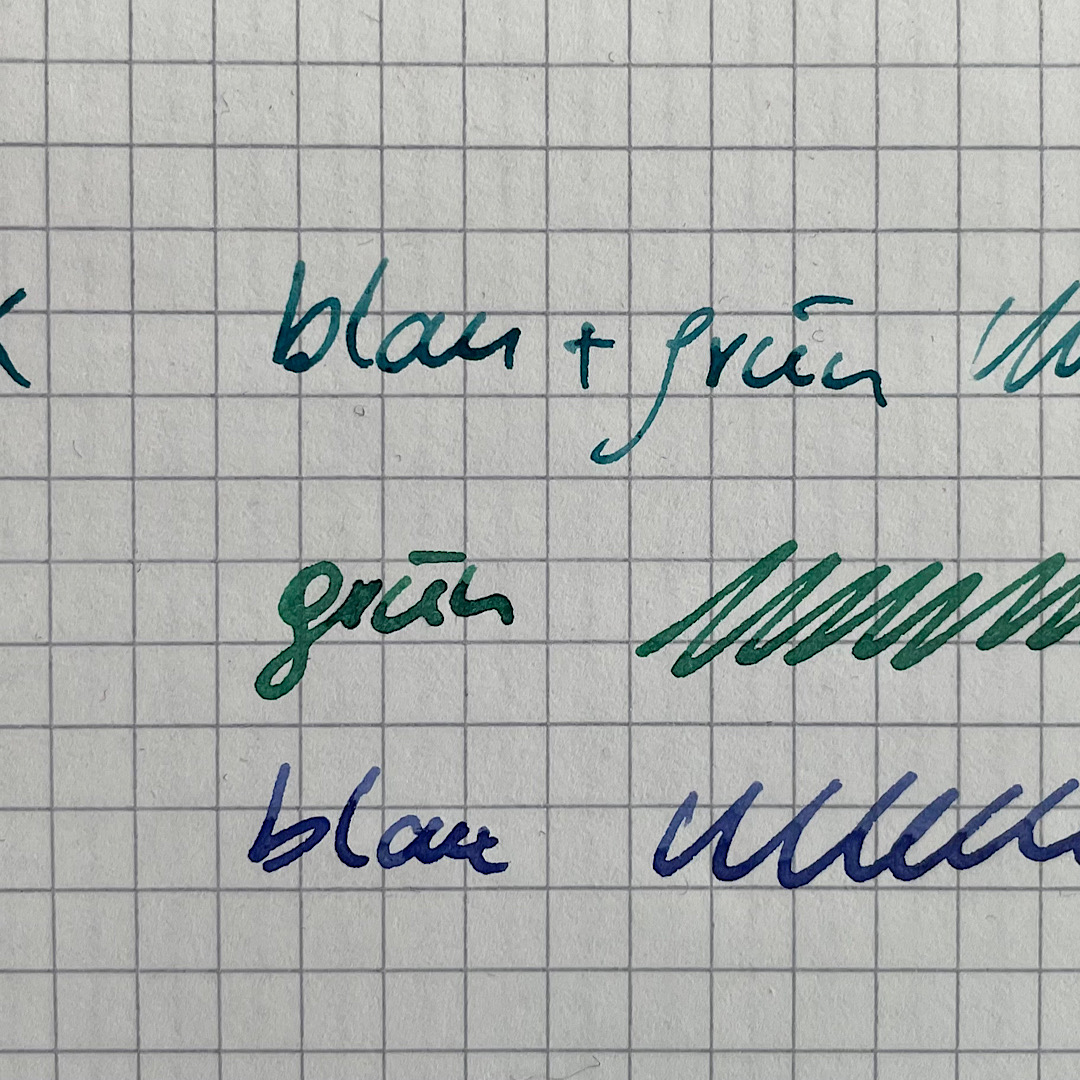 blau + grün
grün
blau